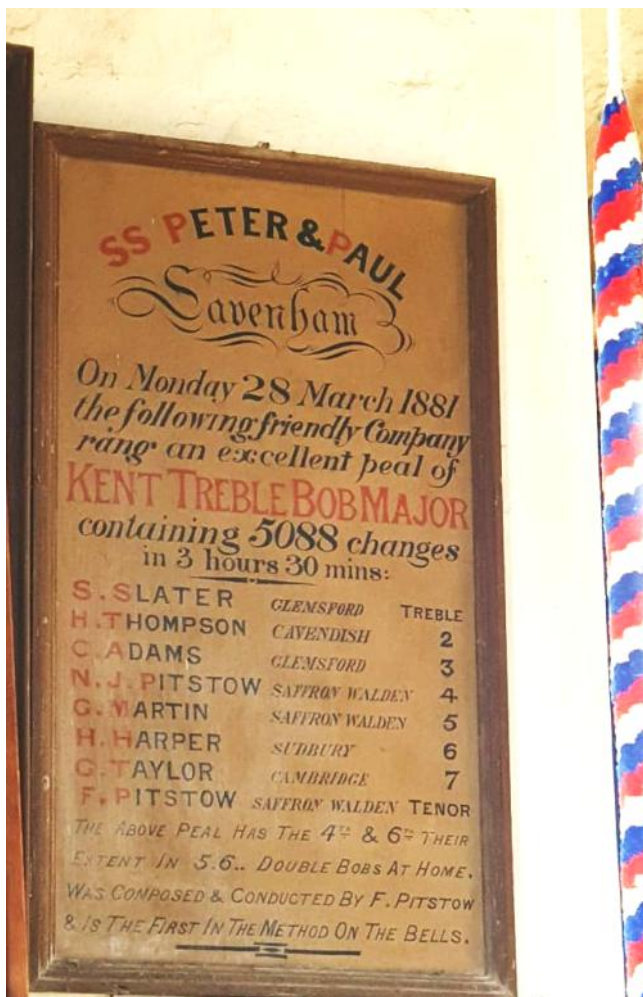 SS PETER & PAUL
Lavenham
On Monday 28 March 1881
the following friendly Company
rang an excellent peal of
KENT TREBLE BOB MAJOR
containing 5088 changes
in 3 hours 30 mins:
S. SLATER GLEMSFORD TREBLE
H. THOMPSON CAVENDISH 2
C. ADAMS GLEMSFORD 3
N. J. PITSTOW SAFFRON WALDEN 4
G. MARTIN SAFFRON WALDEN 5
H. HARPER SUDBURY 6
G. TAYLOR CAMBRIDGE 7
F. PITSTOW SAFFRON WALDEN TENOR
THE ABOVE PEAL HAS THE 4TH & 6TH THEIR
EXTENT IN 5.6.. DOUBLE BOBS AT HOME.
WAS COMPOSED & CONDUCTED BY F. PITSTOW
& IS THE FIRST IN THE METHOD ON THE BELLS.